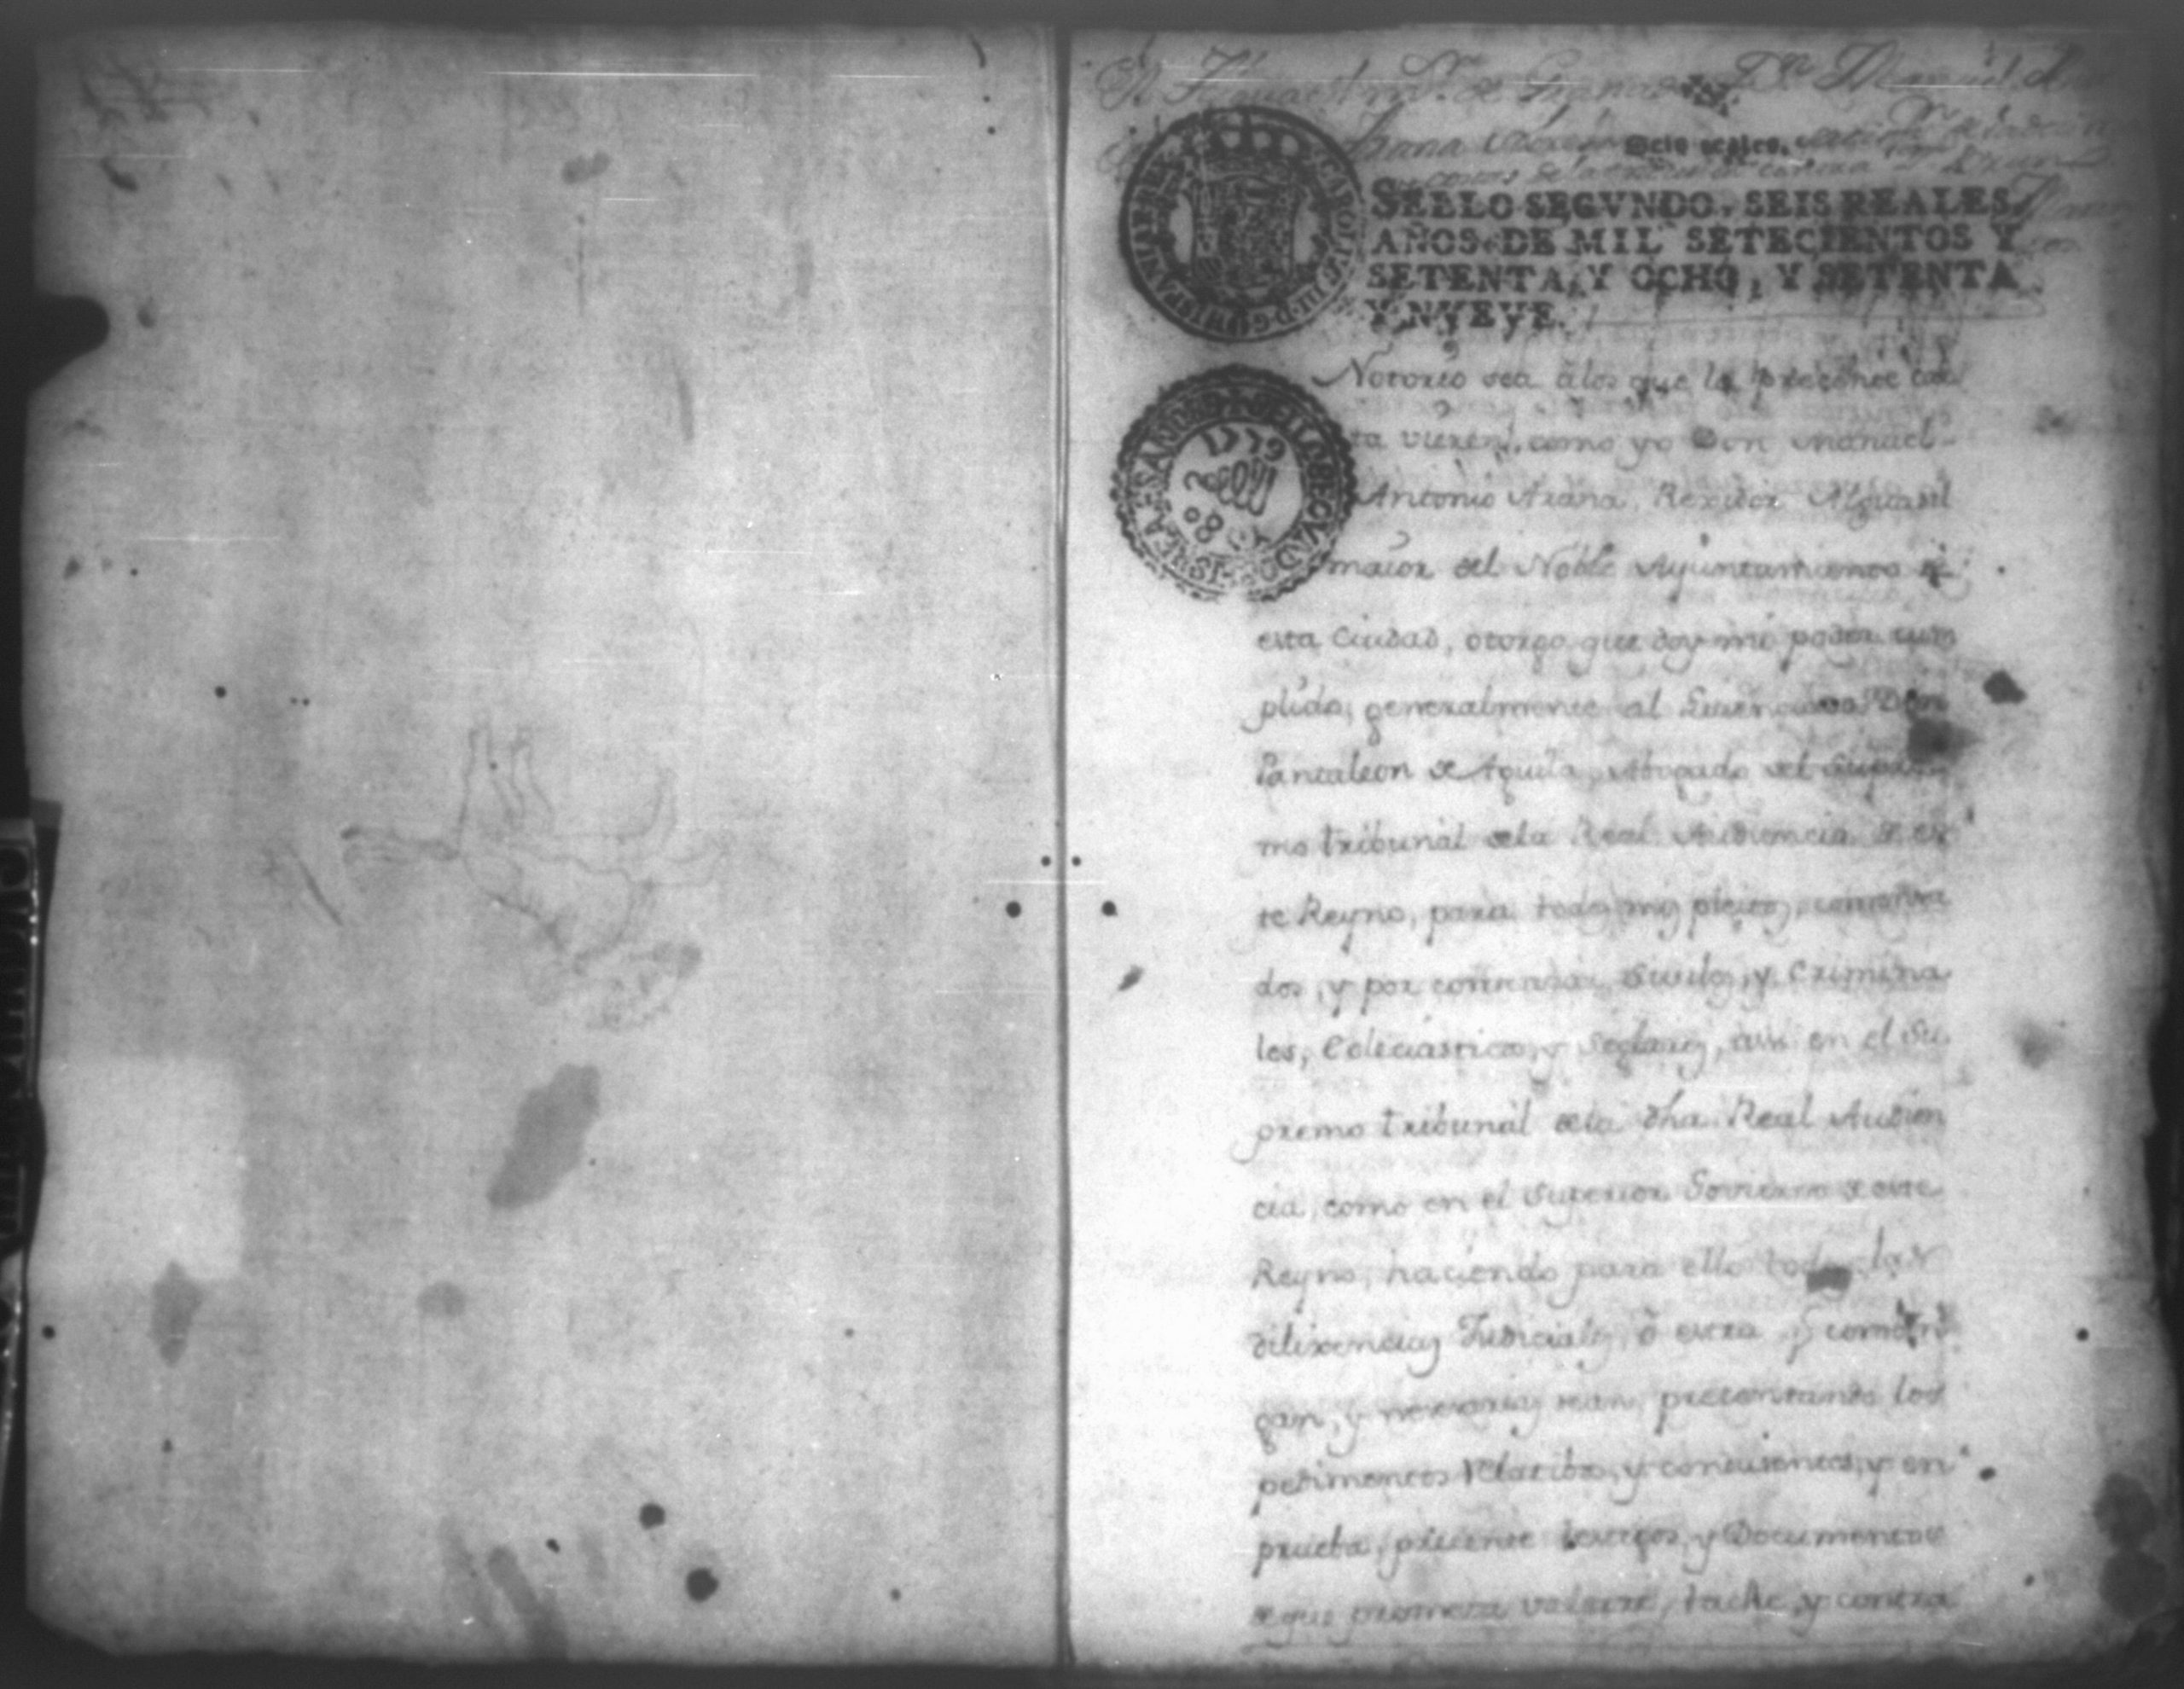 Seis reales.
SELLO SEGVNDO, SEIS REALES,
AÑOS DE MIL SETECIENTOS Y
SETENTA, Y OCHO, Y SETENTA
Y NVEVE.
CAROLVS III D G HISPANIAR REX
1779
Notorio sea â los que la precente car
ta vieren, como yo Don Manuel
Antonio Arana, Rexidor Alguasil
maior del Noble Ayuntamiento de
esta Ciudad, otorgo que doy mi poder cum
plido, generalmente al Licenciado Don
Pantaleon de Aguila Abogado del Supre
mo tribunal dela Real Audiencia de es
te Reyno, para todos mis pleitos, comensa
dos, y por comensar, Siviles, y Crimina
les, Ecleciasticos, y Seglares, assi en el Su
premo tribunal dela dha. Real Audien
cia, como en el Superior Govierno de este
Reyno, haciendo para ello todas las
dilixencias Judiciales, ô extra q combén
gan, y nesesarias sean, precentando los
pedimentos relatibos, y concusentes, y en
prueba, precente testigos, y Documentos
de que prometa valerse, tache, y contra